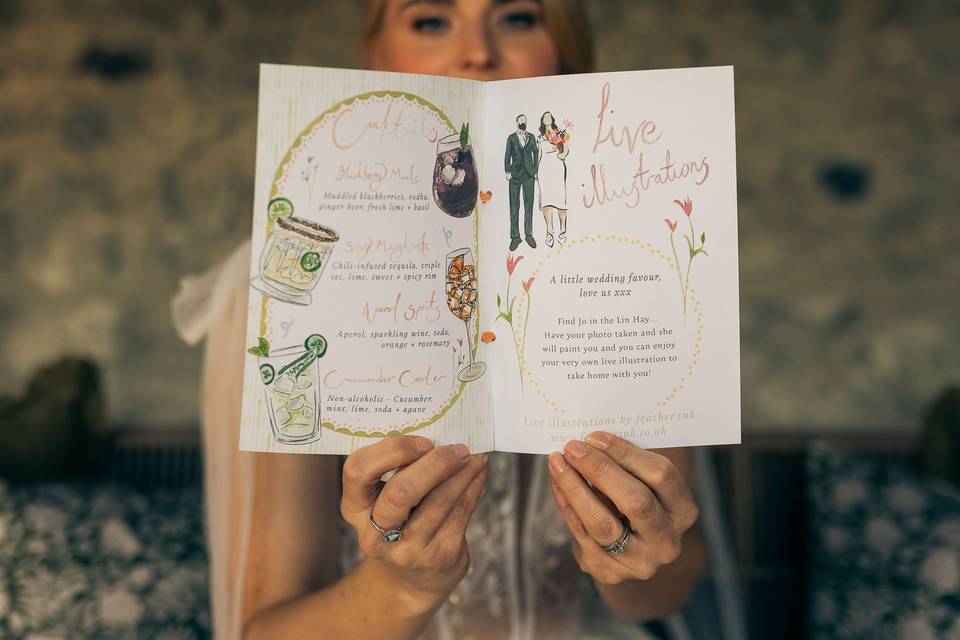 Cocktails
Blackberry Mule
Muddled blackberries, vodka,
ginger beer, fresh lime + basil
Spicy Margherita
Chili-infused tequila, triple
sec, lime, sweet + spicy rim
Aperol Spritz
Aperol, sparkling wine, soda,
orange + rosemary
Cucumber Cooler
Non-alcoholic - Cucumber,
mint, lime, soda + agave
live
illustrations
A little wedding favour,
love us xxx
Find Jo in the Lin Hay...
Have your photo taken and she
will paint you and you can enjoy
your very own live illustration to
take home with you!
Live illustrations by feather.ink